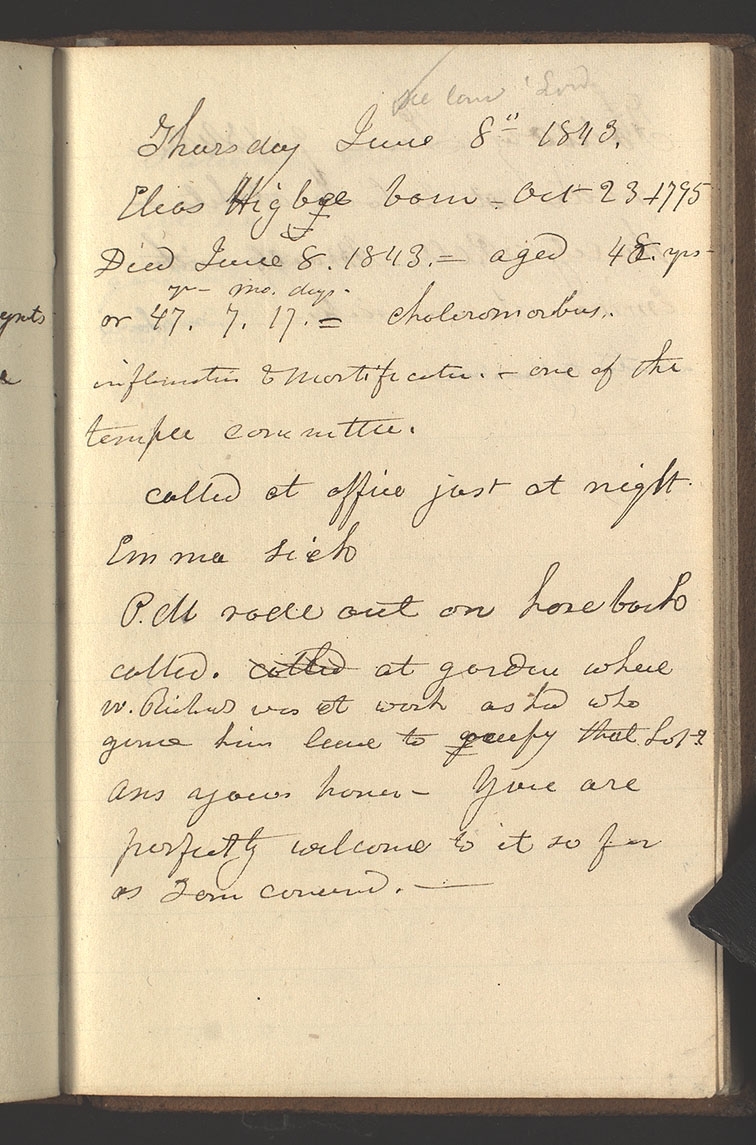 Thursday June 8" 1843.
Elias Higbee born - Oct 23 1795
Died June 8. 1843. = aged 48. yrs-
yr- mo. days-
or 47. 7. 17. = choleromorbus.
inflamatin & Mortificatin. - one of the
temple committee.
called at office just at night.
Emma sick
P.M rode out on horseback
called. called at garden where
w. Richads was at work asked who
gave him leave to occupy that Lot?
Ans yours honor- You are
perfectly welcome to it so far
as I am concernd. -